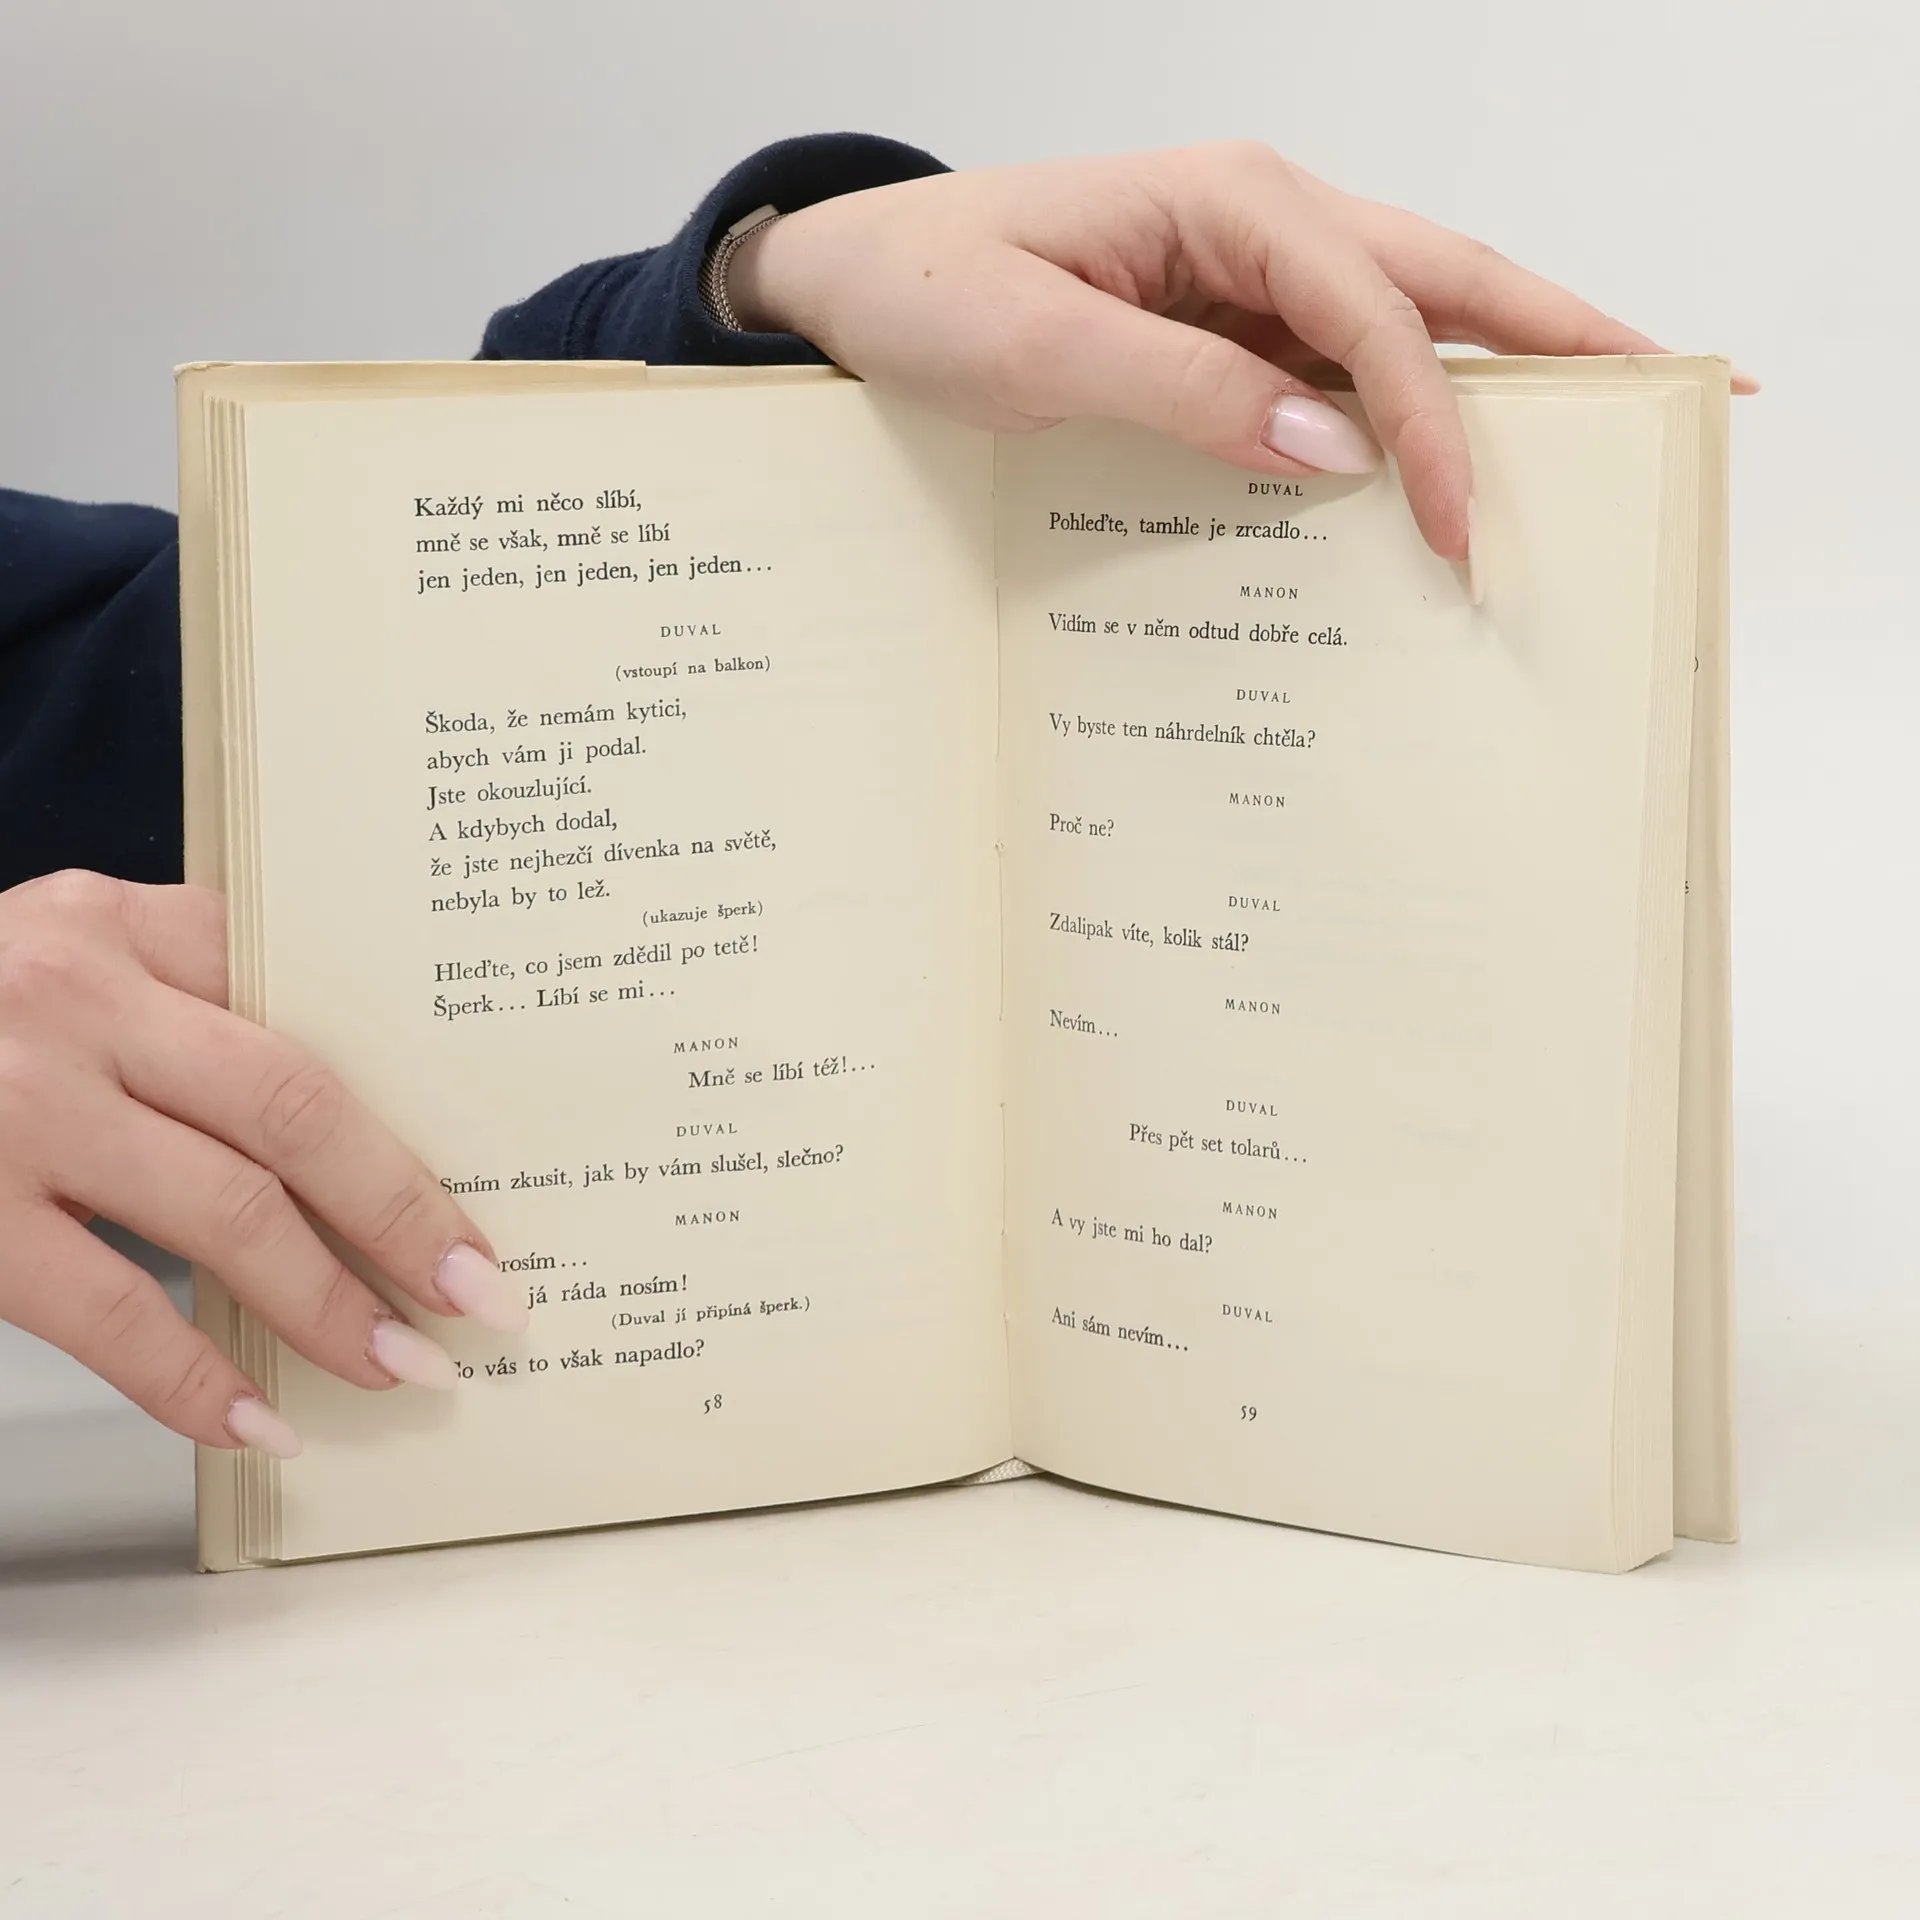 Každý mi něco slíbí,
mně se však, mně se líbí
jen jeden, jen jeden, jen jeden...
DUVAL
(vstoupí na balkon)
Škoda, že nemám kytici,
abych vám ji podal.
Jste okouzlující.
A kdybych dodal,
že jste nejhezčí dívenka na světě,
nebyla by to lež.
(ukazuje šperk)
Hleďte, co jsem zdědil po tetě!
Šperk... Líbí se mi...
MANON
Mně se líbí též!...
DUVAL
Smím zkusit, jak by vám slušel, slečno?
MANON
já ráda nosím!
(Duval jí připíná šperk.)
vás to však napadlo?
58
DUVAL
Pohleďte, tamhle je zrcadlo...
MANON
Vidím se v něm odtud dobře celá.
DUVAL
Vy byste ten náhrdelník chtěla?
MANON
Proč ne?
DUVAL
Zdalipak víte, kolik stál?
MANON
Nevím...
DUVAL
Přes pět set tolarů...
MANON
A vy jste mi ho dal?
DUVAL
Ani sám nevím...
59